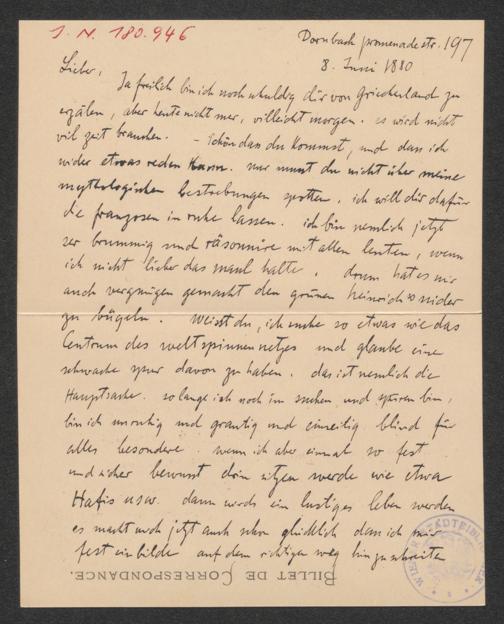 J. N. 180.946
Dornbach promenadestr. 197
8. Juni 1880
Lieber,
Ja freilich bin ich noch schuldig dir von Griechenland zu
erzälen, aber heute nicht mer, villeicht morgen. es wird nicht
vil zeit brauchen. – Schön dass du kommst, und dass ich
wider etwas reden kann. nur musst du nicht über meine
mythologischen bestrebungen spotten, ich will dir dafür
die franzosen in ruhe lassen. ich bin nemlich jetzt
ser brummig und räsonnire mit allen leuten, wenn
ich nicht lieber das maul halte. drum hat es mir
auch vergnügen gemacht den grünen Heinrich wider
zu bügeln. Weisst du, ich suche so etwas wie das
Centrum des weltspinnennetzes und glaube eine
schwache spur davon zu haben. das ist nemlich die
Hauptsache. solange ich noch im suchen und spüren bin,
bin ich unruhig und grantig und einseitig blind für
alles besondere. wenn ich aber einmal so fest
und sicher bewusst drin sitzen werde wie etwa
Hafis usw. dann wirds ein lustiges leben werden
es macht mich jetzt auch schon glücklich dass ich mir
fest einbilde auf dem richtigen weg hinzuschreiten
BILLET DE CORRESPONDANCE.